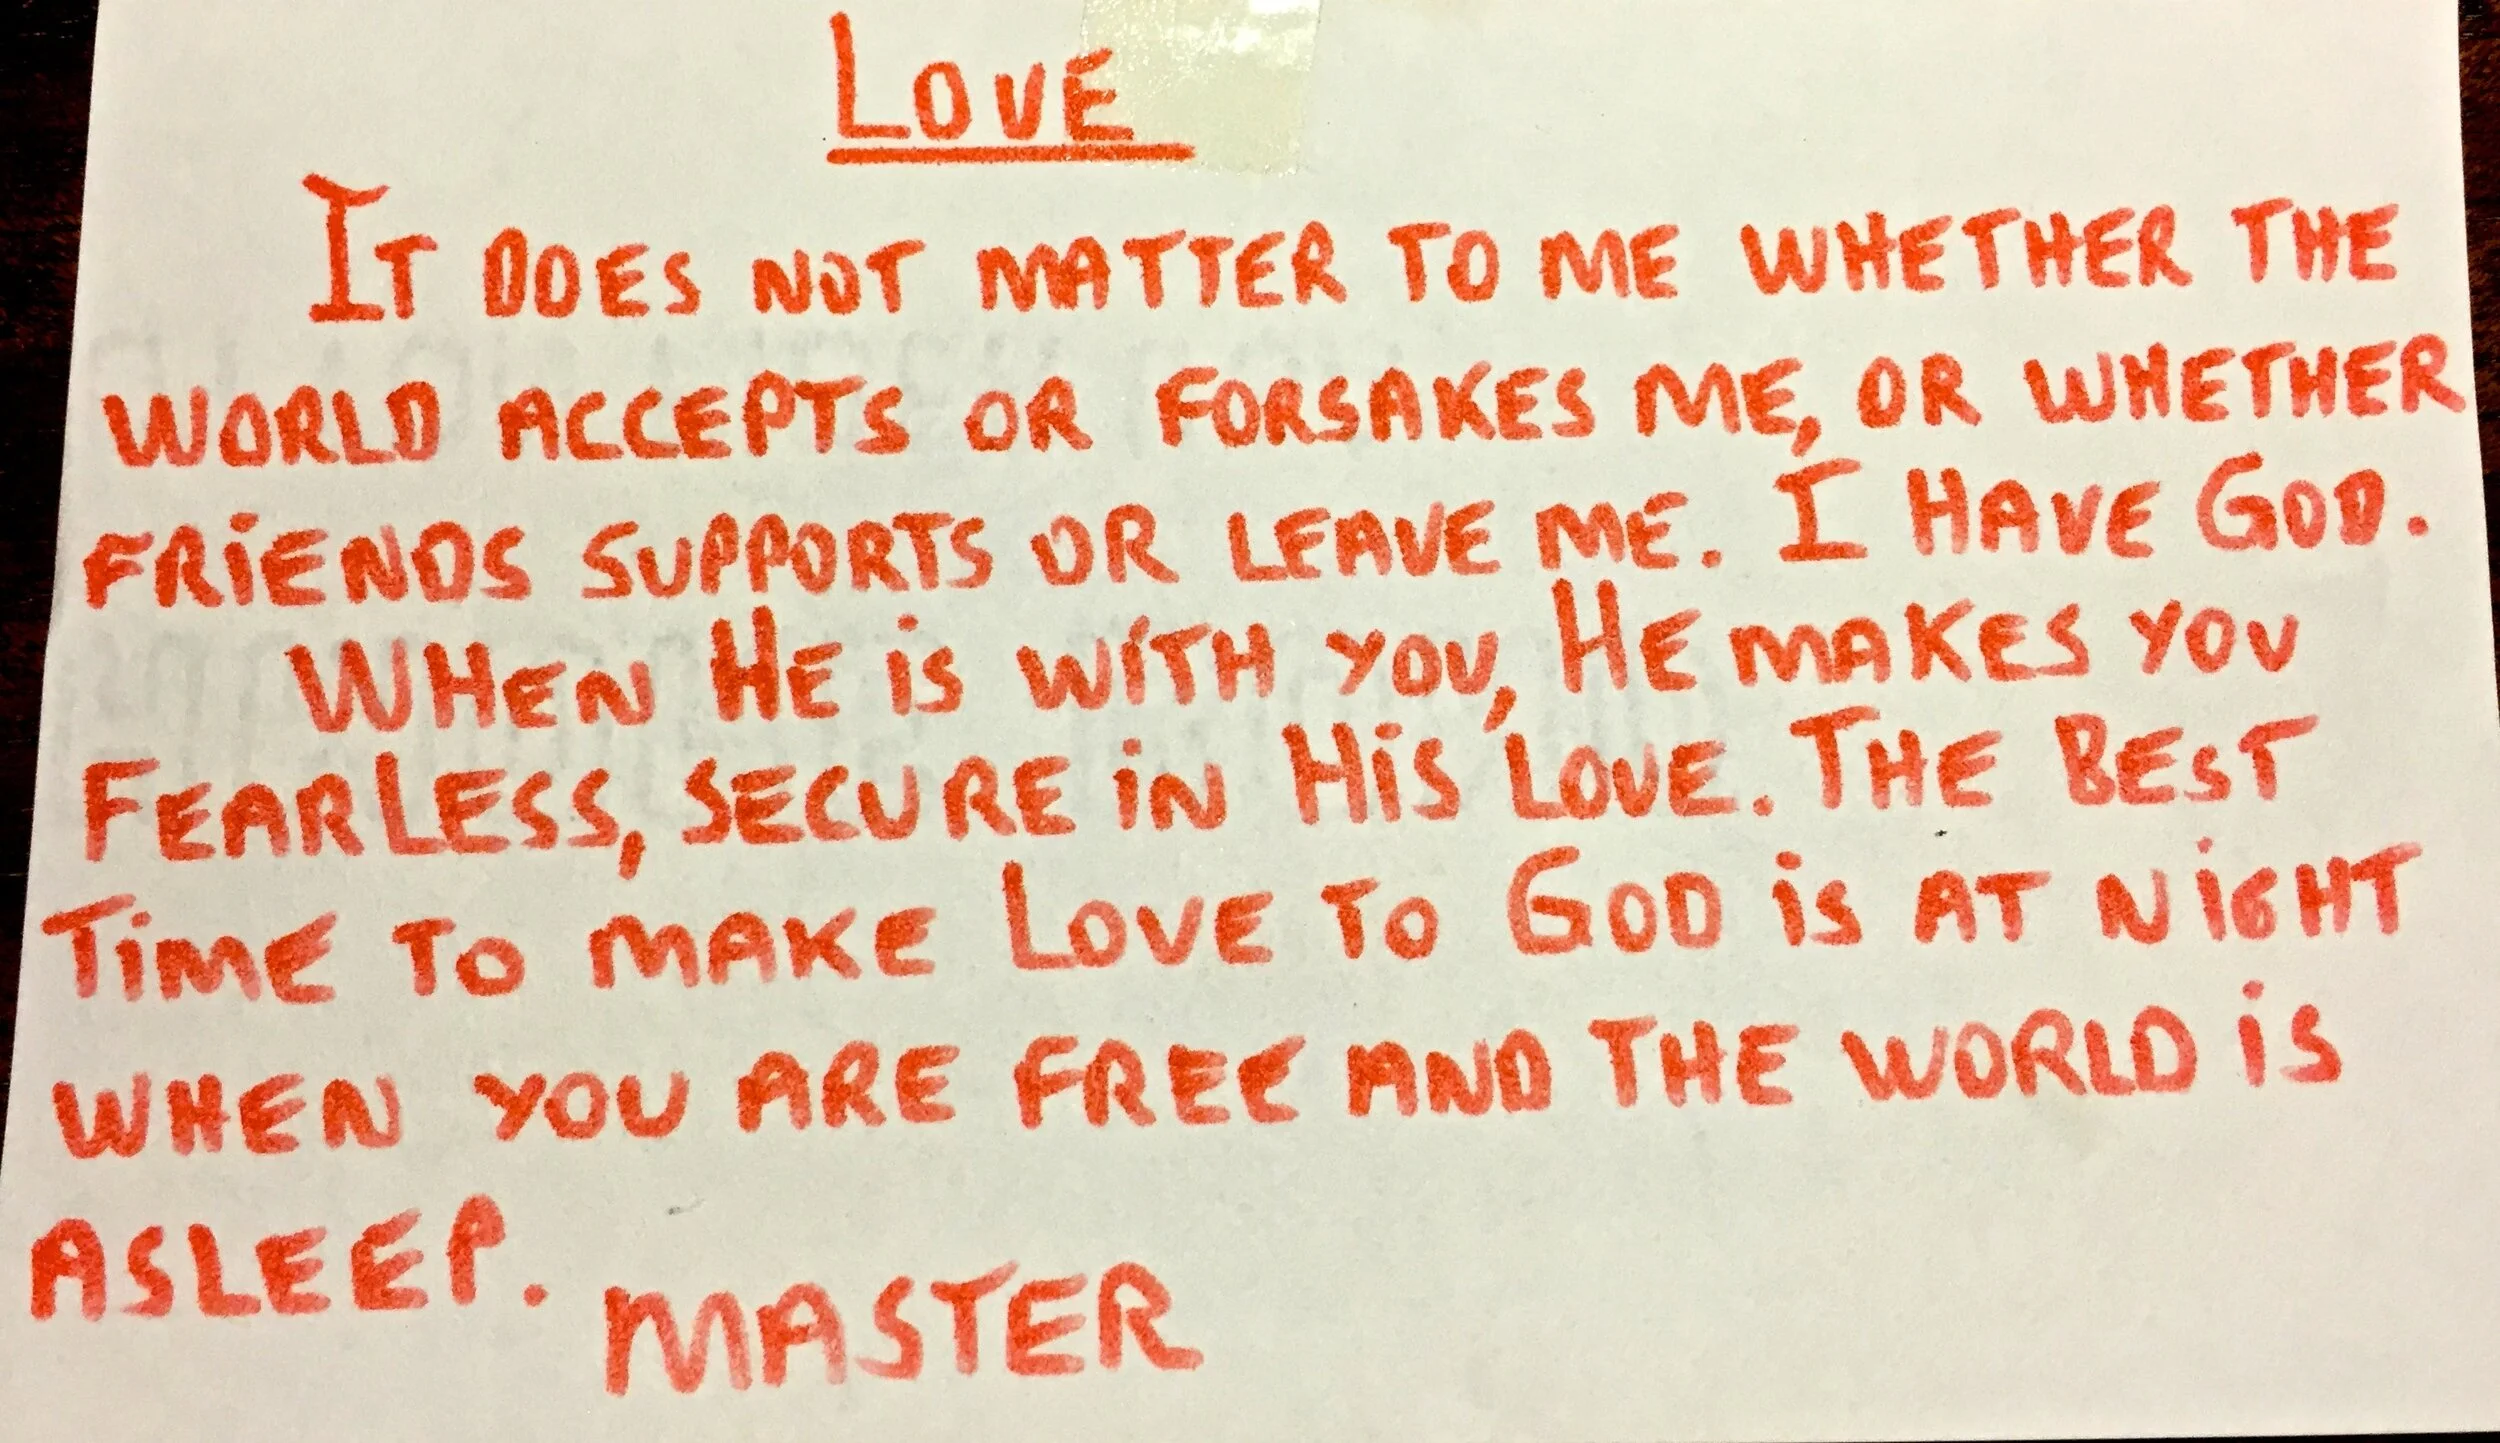 LOVE
IT DOES NOT MATTER TO ME WHETHER THE
WORLD ACCEPTS OR FORSAKES ME, OR WHETHER
FRIENDS SUPPORTS OR LEAVE ME. I HAVE GOD.
WHEN HE IS WITH YOU, HE MAKES YOU
FEARLESS, SECURE IN HIS LOVE. THE BEST
TIME TO MAKE LOVE TO GOD IS AT NIGHT
WHEN YOU ARE FREE AND THE WORLD IS
ASLEEP. MASTER